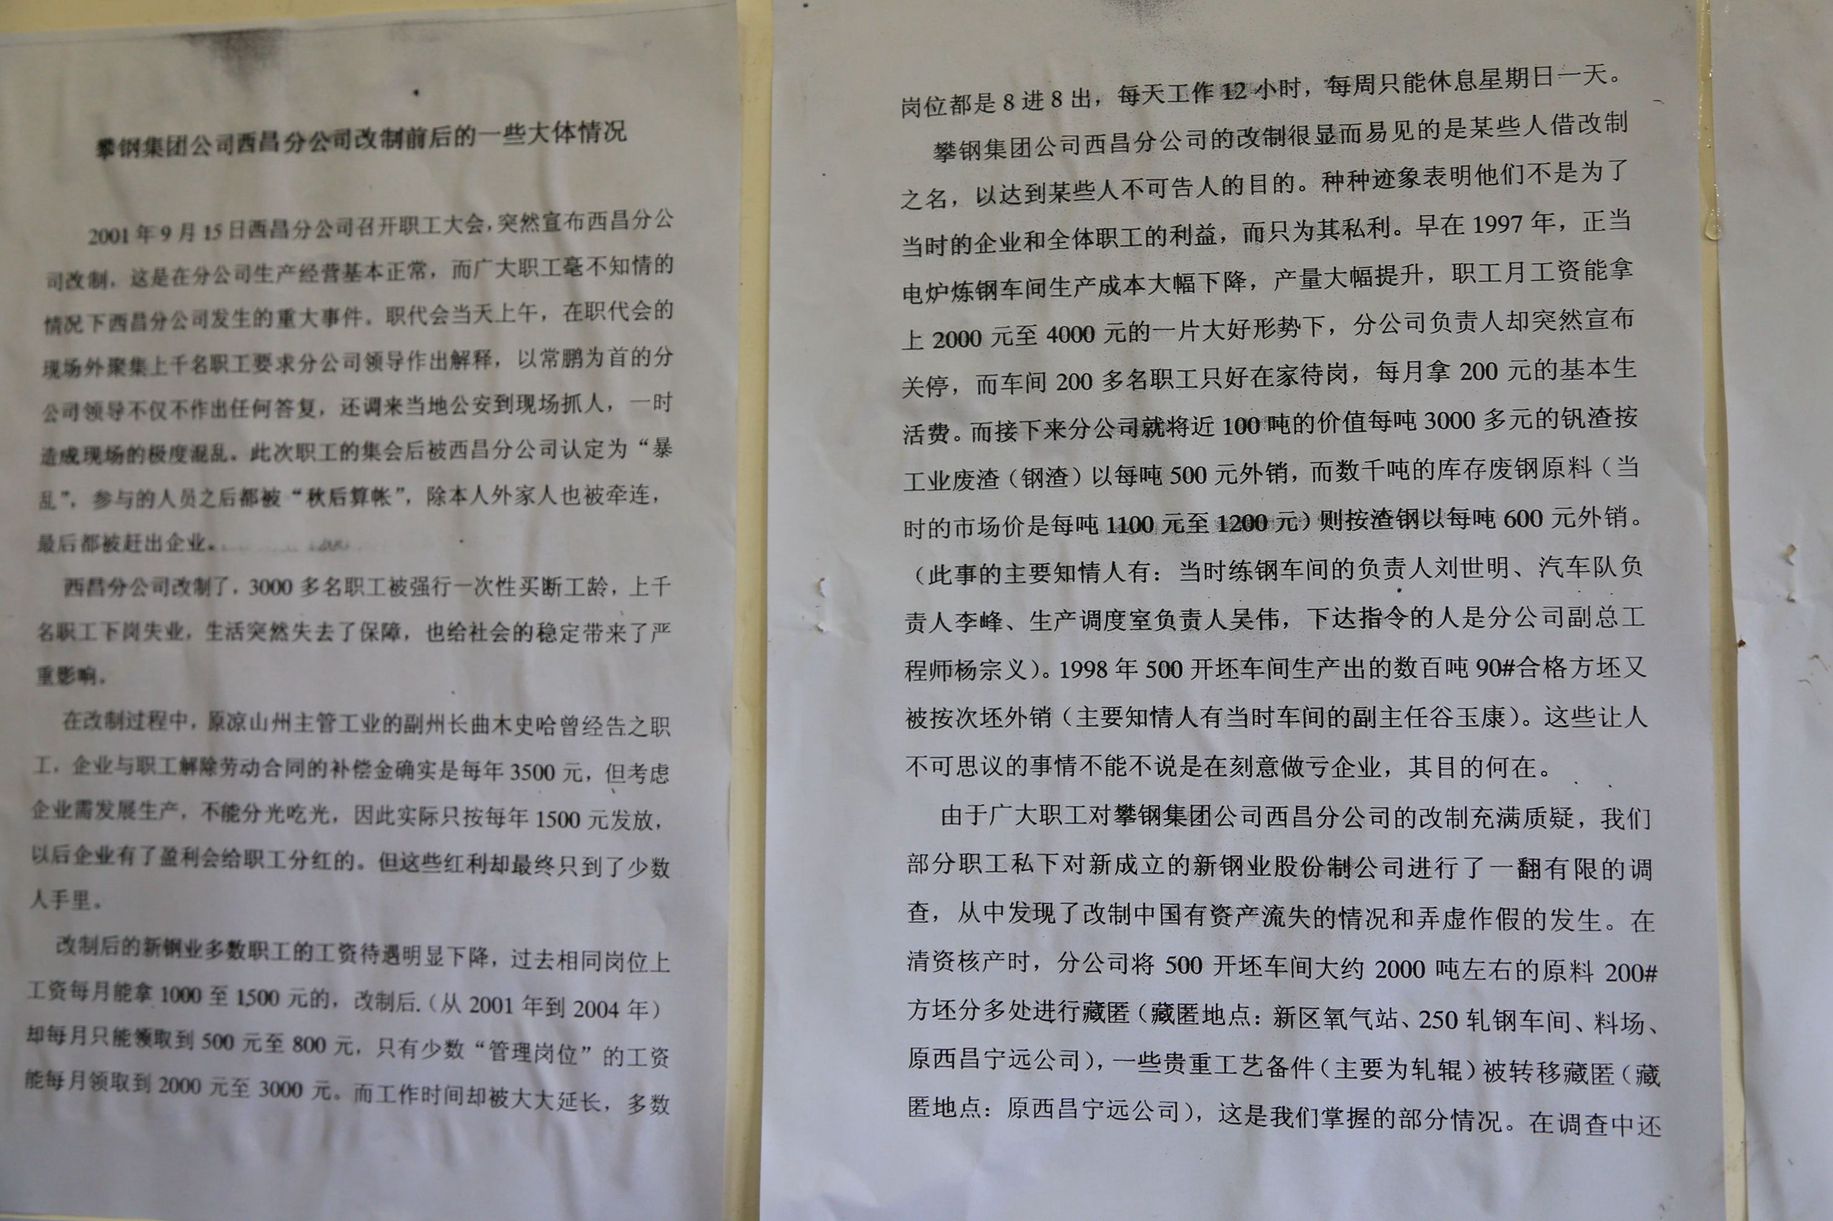 攀钢集团公司西昌分公司改制前后的一些大体情况
2001年9月15日西昌分公司召开职工大会,突然宣布西昌分公
司改制，这是在分公司生产经营基本正常，而广大职工毫不知情的
情况下西昌分公司发生的重大事件。职代会当天上午，在职代会的
现场外聚集上千名职工要求分公司领导作出解释，以常鹏为首的分
公司领导不仅不作出任何答复，还调来当地公安到现场抓人，一时
造成现场的极度混乱。此次职工的集会后被西昌分公司认定为“暴
乱”，参与的人员之后都被“秋后算帐”，除本人外家人也被牵连，
最后都被赶出企业。
西昌分公司改制了，3000多名职工被强行一次性买断工龄，上千
名职工下岗失业，生活突然失去了保障，也给社会的稳定带来了严
重影响。
在改制过程中，原凉山州主管工业的副州长曲木史哈曾经告之职
工，企业与职工解除劳动合同的补偿金确实是每年3500元，但考虑
企业需发展生产，不能分光吃光，因此实际只按每年1500元发放，
以后企业有了盈利会给职工分红的。但这些红利却最终只到了少数
人手里。
改制后的新钢业多数职工的工资待遇明显下降，过去相同岗位上
工资每月能拿1000至1500元的，改制后.（从2001年到2004年）
却每月只能领取到500元至800元，只有少数“管理岗位”的工资
能每月领取到2000元至3000元。而工作时间却被大大延长，多数
岗位都是8进8出，每天工作12小时，每周只能休息星期日一天。
攀钢集团公司西昌分公司的改制很显而易见的是某些人借改制
之名，以达到某些人不可告人的目的。种种迹象表明他们不是为了
当时的企业和全体职工的利益，而只为其私利。早在1997年，正当
电炉炼钢车间生产成本大幅下降，产量大幅提升，职工月工资能拿
上2000元至4000元的一片大好形势下，分公司负责人却突然宣布
关停，而车间200多名职工只好在家待岗，每月拿200元的基本生
活费。而接下来分公司就将近100吨的价值每吨3000多元的钒渣按
工业废渣（钢渣）以每吨500元外销，而数千吨的库存废钢原料（当
时的市场价是每吨1100元至1200元）则按渣钢以每吨600元外销。
（此事的主要知情人有：当时练钢车间的负责人刘世明、汽车队负
责人李峰、生产调度室负责人吴伟，下达指令的人是分公司副总工
程师杨宗义）。1998年500开坯车间生产出的数百吨90#合格方坯又
被按次坯外销（主要知情人有当时车间的副主任谷玉康）。这些让人
不可思议的事情不能不说是在刻意做亏企业，其目的何在。
由于广大职工对攀钢集团公司西昌分公司的改制充满质疑，我们
部分职工私下对新成立的新钢业股份制公司进行了一翻有限的调
查，从中发现了改制中国有资产流失的情况和弄虚作假的发生。在
清资核产时，分公司将500开坯车间大约2000吨左右的原料200#
方坯分多处进行藏匿（藏匿地点：新区氧气站、250轧钢车间、料场、
原西昌宁远公司），一些贵重工艺备件（主要为轧辊）被转移藏匿（藏
匿地点：原西昌宁远公司），这是我们掌握的部分情况。在调查中还